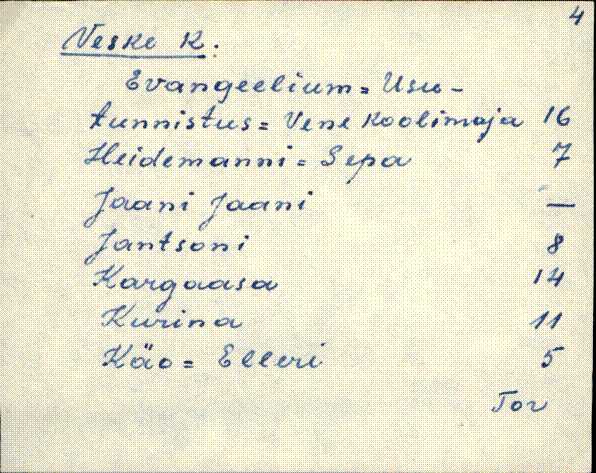 4
Veske K.
Evangeelium = Usu-
tunnistus = Vene Koolimaja 16
Heidemanni = Sepa 7
Jaani Jaani —
Jantsoni 8
Kargaasa 14
Kurina 11
Käo = Elleri 5
Tor